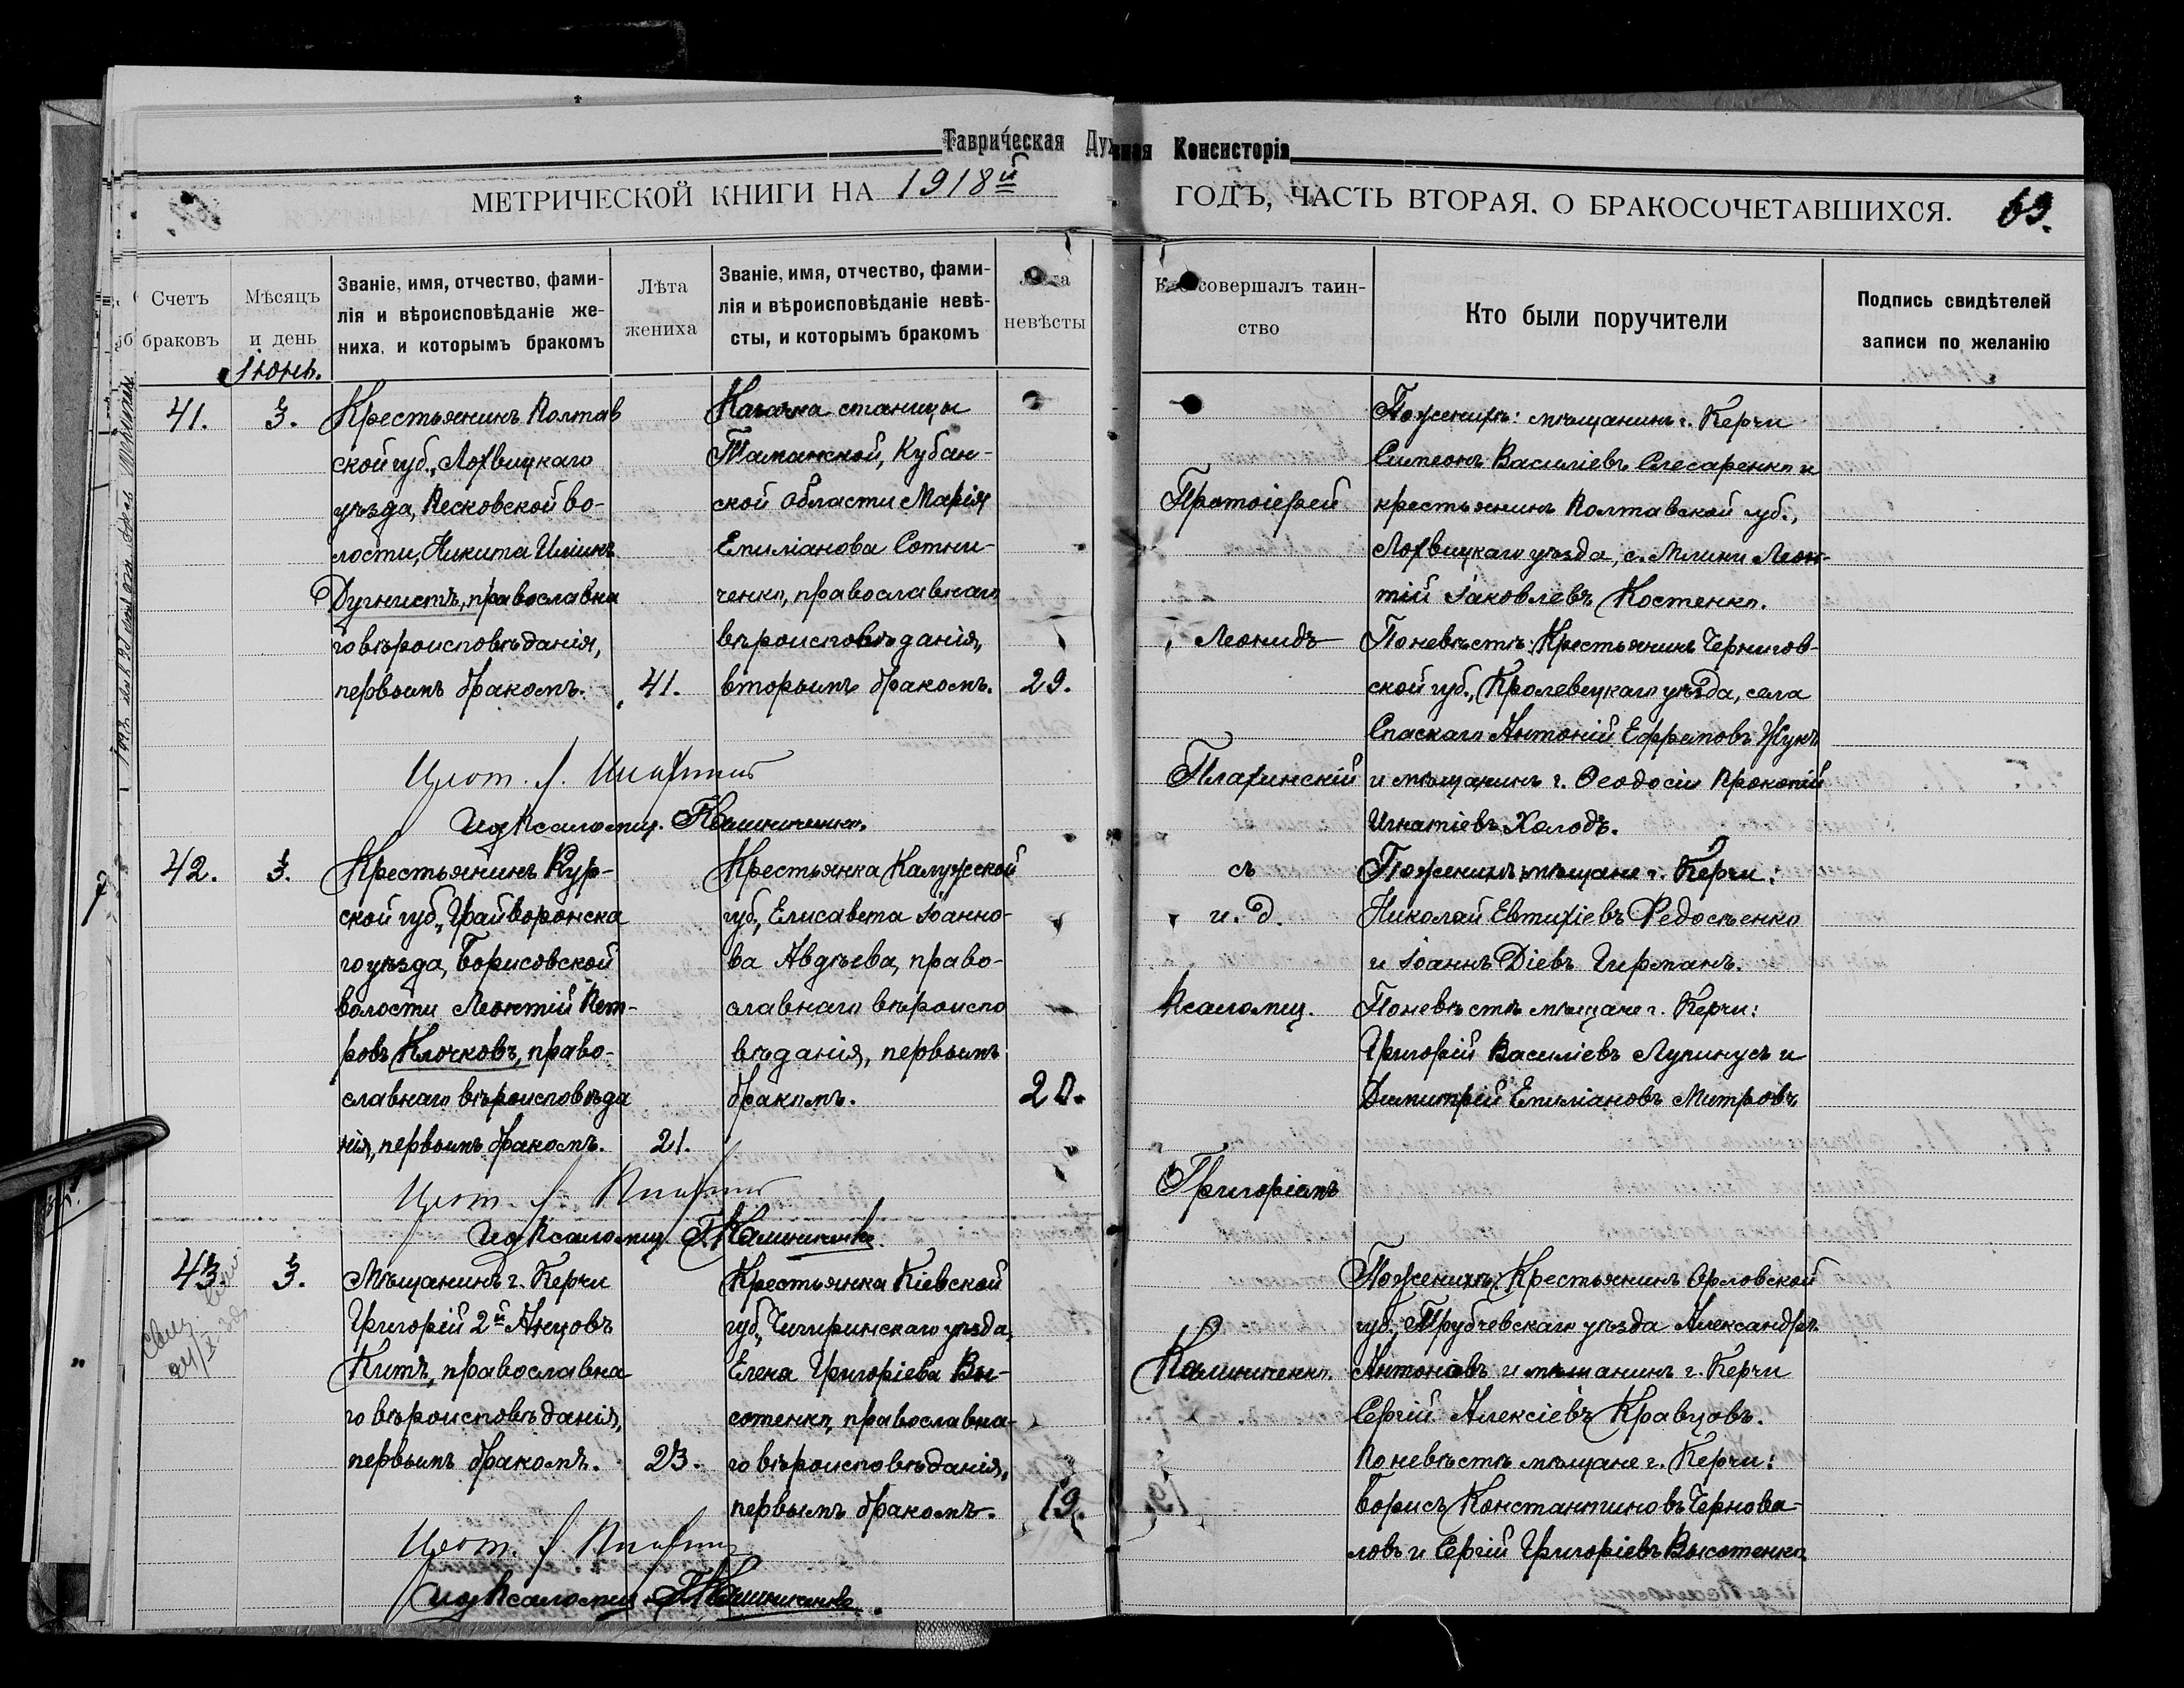 Таврическая Духовная Консисторія
МЕТРИЧЕСКОЙ КНИГИ НА 1918й ГОДЪ, ЧАСТЬ ВТОРАЯ, О БРАКОСОЧЕТАВШИХСЯ. 63.
Счетъ браковъ
Мѣсяцъ и день
Званіе, имя, отчество, фами-
лія и вѣроисповѣданіе же-
ниха, и которымъ бракомъ
Лѣта жениха
Званіе, имя, отчество, фами-
лія и вѣроисповѣданіе невѣ-
сты, и которымъ бракомъ
Лѣта невѣсты
Кто совершалъ таин-
ство
Кто были поручители
Подпись свидѣтелей
записи по желанію
Іюнь.
41.
3.
Крестьянинъ Полтав
ской губ., Лохвицкаго
уѣзда, Песковской во-
лости, Никита Иліинъ
Дугнистъ, православна
го вѣроисповѣданія,
первымъ бракомъ.
41.
Казачка станицы
Таманской, Кубан-
ской области Марія
Емиліанова Сотни-
ченко, православнаго
вѣроисповѣданія,
вторымъ бракомъ.
29.
Прот. Л.
И.д. Псаломщ. Г. Калиниченко.
Протоіерей
Леонидъ
съ
и. д.
Псаломщ.
Григоріемъ
Калиниченко.
По женихѣ: мѣщанинъ г. Керчи
Симеонъ Василіевъ Слесаренко и
крестьянинъ Полтавской губ.,
Лохвицкаго уѣзда, с. Млини Леон-
тій Іаковлевъ Костенко.
По невѣстѣ: Крестьянинъ Чернигов-
ской губ., Кролевецкаго уѣзда, села
Спаскаго Антоній Ефремовъ Жукъ
и мѣщанинъ г. Ѳеодосіи Прокопій
Игнатіевъ Холодъ.
42.
3.
Крестьянинъ Кур-
ской губ., Грайворонска
го уѣзда, Борисовской
волости Леонтій Пет-
ровъ Клочковъ, право-
славнаго вѣроисповѣда
нія, первымъ бракомъ.
21.
Крестьянка Калужской
губ., Елисавета Іоанно-
ва Авдѣева, право-
славнаго вѣроиспо
вѣданія, первымъ
бракомъ.
20.
Прот. Л.
И.д. Псаломщ. Г. Калиниченко.
По женихѣ мѣщане г. Керчи:
Николай Евтихіевъ Федосѣенко
и Іоаннъ Діевъ Гирманъ.
По невѣстѣ мѣщане г. Керчи:
Григорій Василіевъ Лупинусъ и
Димитрій Емиліановъ Митровъ
43.
3.
Мѣщанинъ г. Керчи
Григорій 2й
Китъ, православна
го вѣроисповѣданія,
первымъ бракомъ.
23.
Крестьянка Кіевской
губ., Чигиринскаго уѣзда,
Елена Григоріева Вы-
сотенко, православна-
го вѣроисповѣданія,
первымъ бракомъ.
19.
Прот. Л.
И.д. Псаломщ. Г. Калиниченко.
По женихѣ: Крестьянинъ Орловской
губ., Трубчевскаго уѣзда Александръ
Антоновъ и мѣщанинъ г. Керчи
Сергій Алексіевъ Кравцовъ.
По невѣстѣ мѣщане г. Керчи:
Борисъ Константиновъ Чернова-
ловъ и Сергій Григоріевъ Высотенко